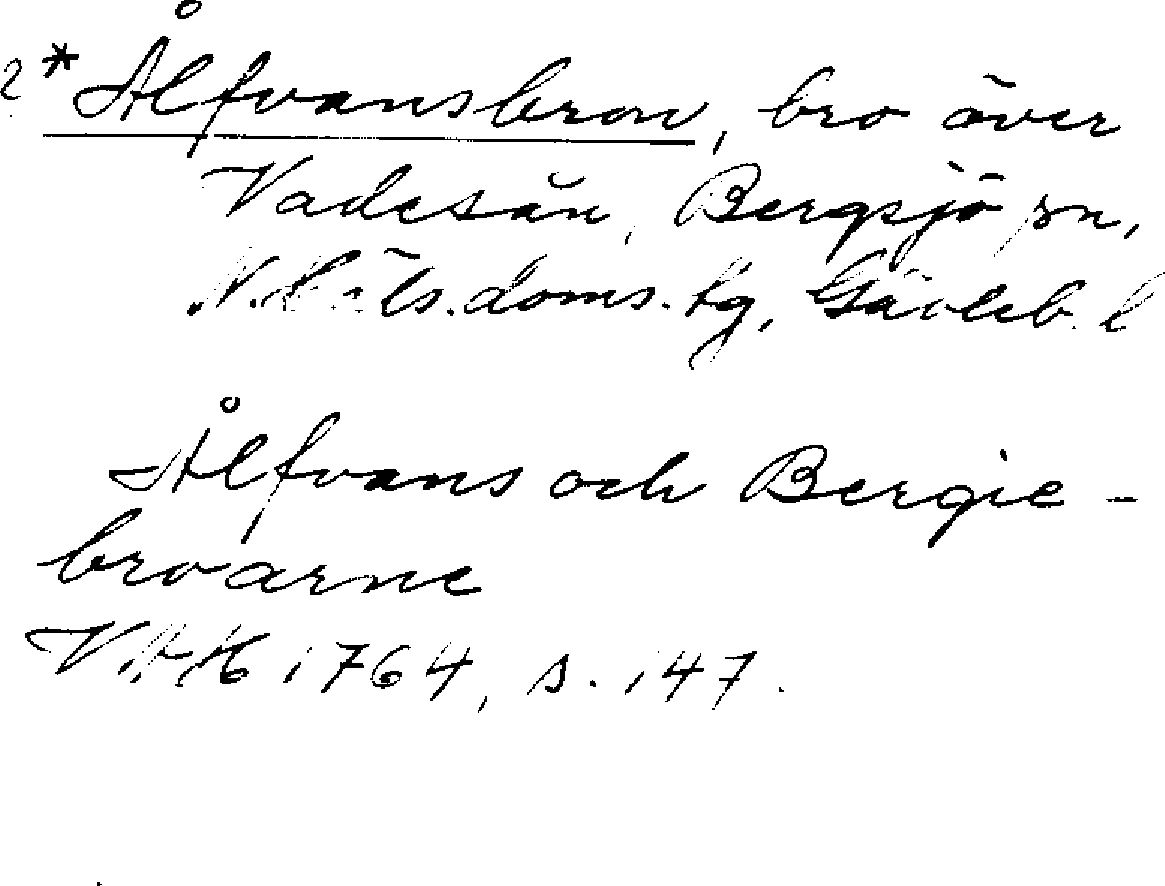 ? * Ålfvansbron, bro över
Vadesån, Bergsjö sn,
N. Häls. doms. tg, Gävleb. l
Ålfvans och Bergie-
broarne
1764, s. 147.